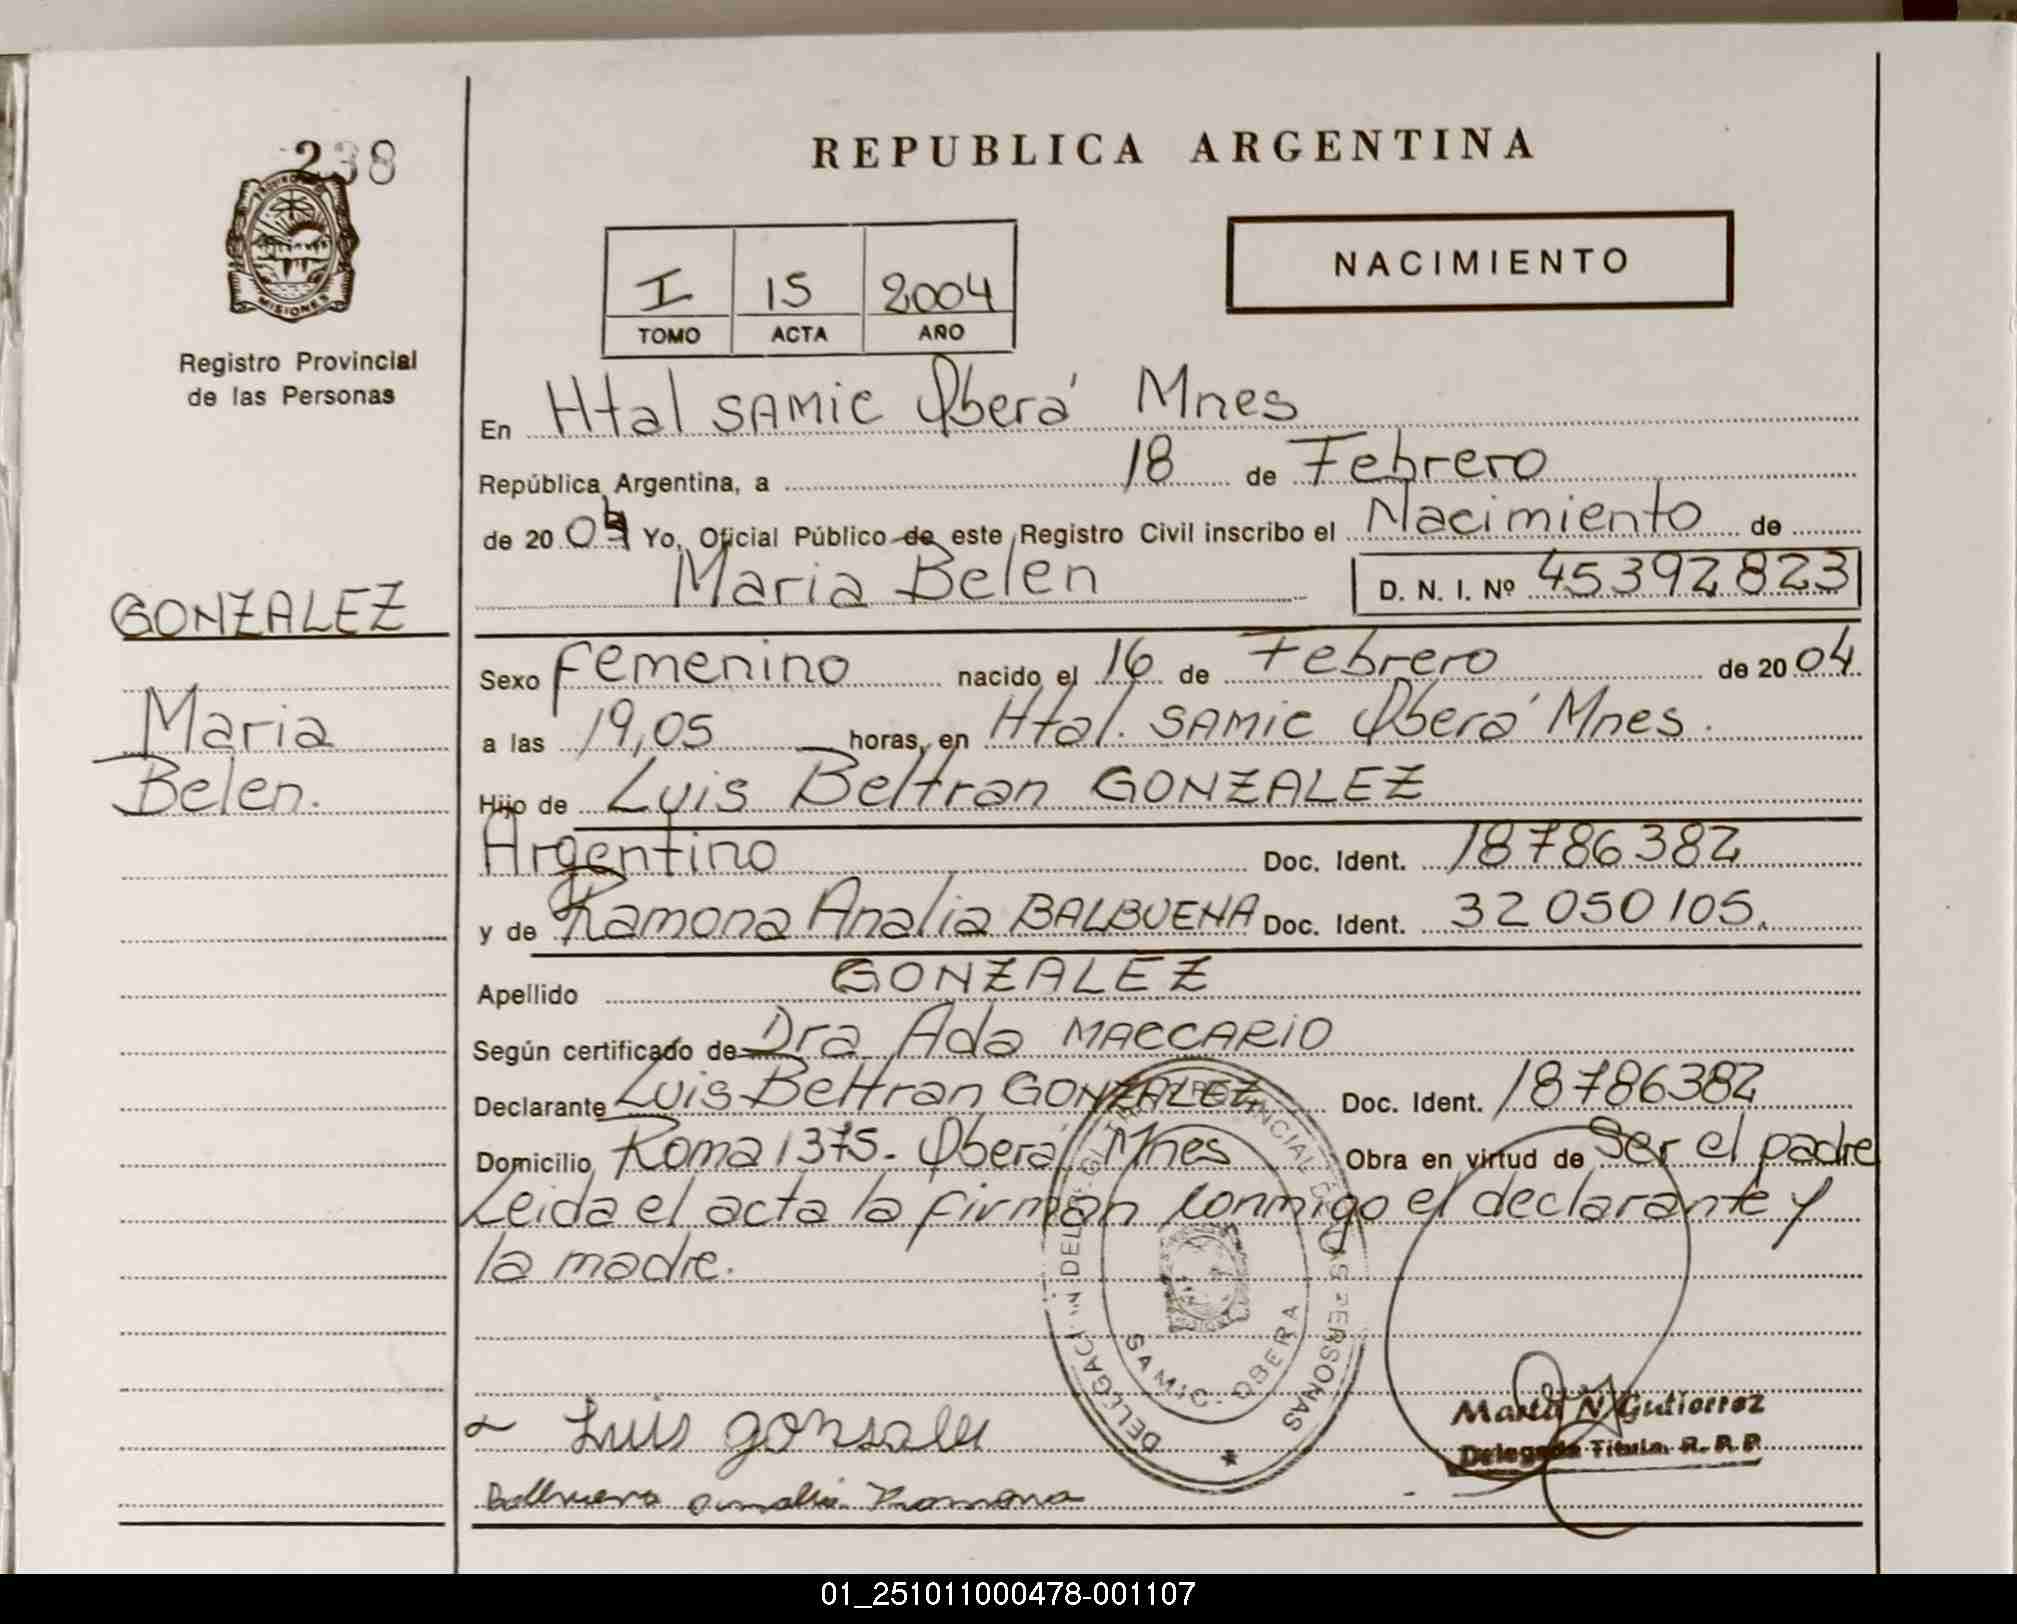 238
PROVINCIA
MISIONES
Registro Provincial
de las Personas
GONZALEZ
Maria
Belen.
REPUBLICA ARGENTINA
I 15 2004
TOMO ACTA AÑO
NACIMIENTO
En Htal SAMIC Oberá Mnes
República Argentina, a 18 de Febrero
de 2004 Yo, Oficial Público de este Registro Civil inscribo el Nacimiento de
Maria Belen D. N. I. Nº 45392823
Sexo femenino nacido el 16 de Febrero de 2004.
a las 19,05 horas, en Htal. SAMIC Oberá Mnes.
Hijo de Luis Beltran GONZALEZ
Argentino Doc. Ident. 18786382
y de Ramona Analia BALBUENA Doc. Ident. 32050105.
Apellido GONZALEZ
Según certificado de Dra Ada MACCARIO
Declarante Luis Beltran GONZALEZ Doc. Ident. 18786382
Domicilio Roma 1375- Oberá Mnes Obra en virtud de Ser el padre
Leida el acta la firman conmigo el declarante y
la madre.
DELEGACION DEL REGISTRO PROVINCIAL DE LAS PERSONAS
SAMIC. OBERA
Luis gonzalez
Marta N. Gutierrez
Delegada Titular R. P. P.
Balbuena analia Ramona
01_251011000478-001107